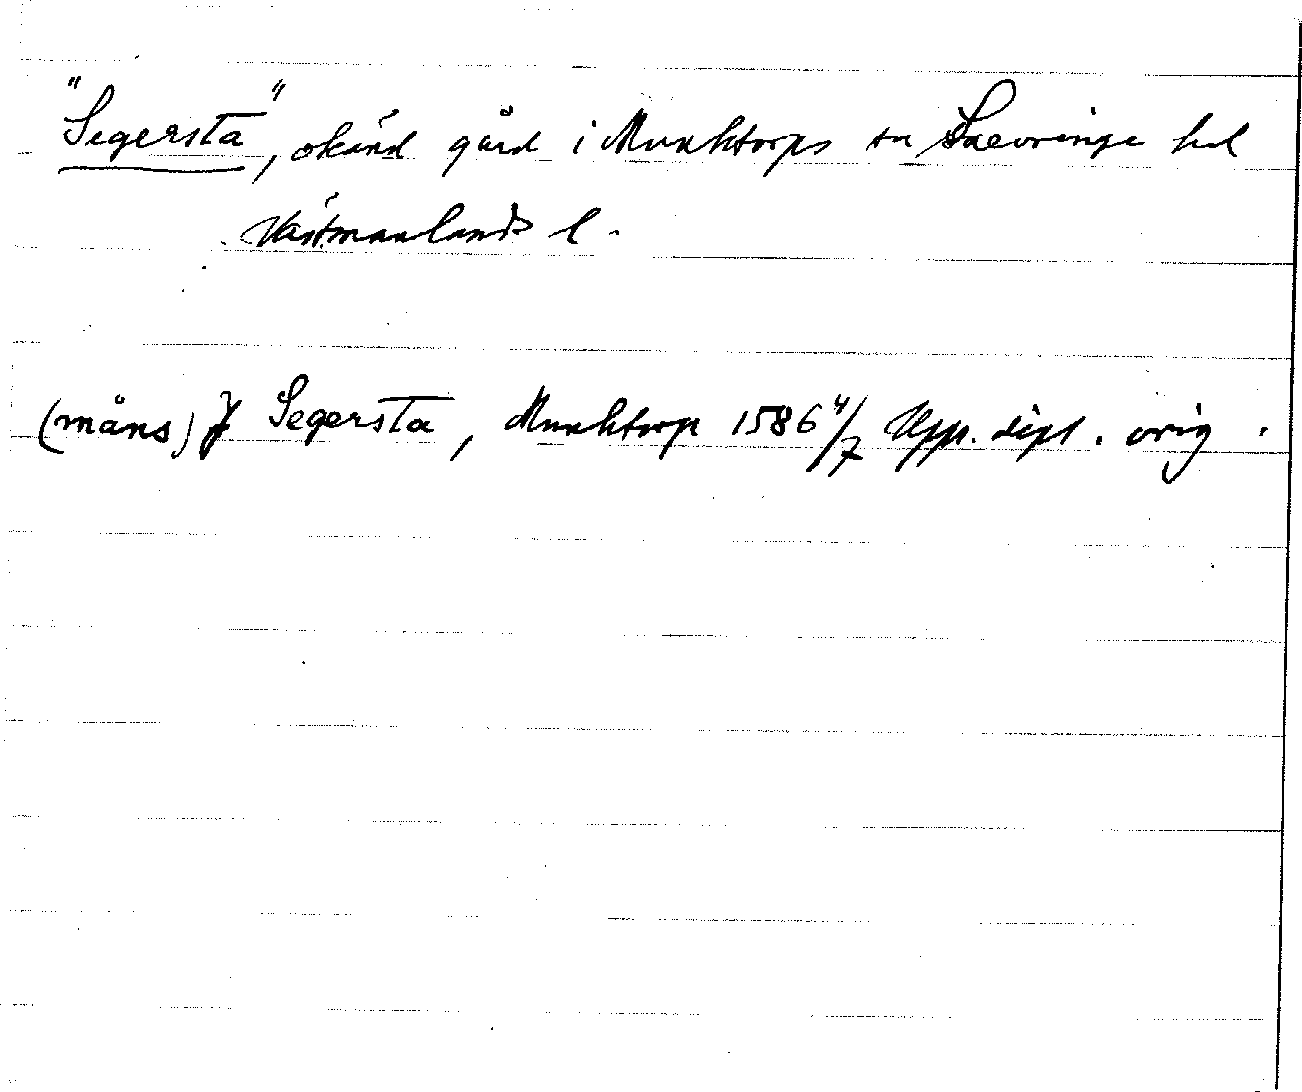 "Segersta", okänd gård i Munktorps sn Snevringe hd
Västmanlands l.
(måns) J Segersta, Munktorp 1586 4/7 Upp. dipl. orig.